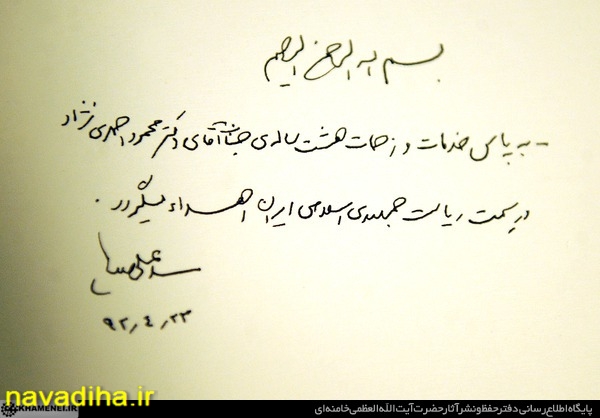 بسم الله الرحمن الرحیم
- به پاس خدمات و زحمات هشت ساله‌ی جناب آقای دکتر محمود احمدی نژاد
در سمت ریاست جمهوری اسلامی ایران اهداء میگردد.
سید علی
۹۲٫۴٫۲۳
navadiha.ir
KHAMENEI.IR
پایگاه اطلاع رسانی دفتر حفظ و نشر آثار حضرت آیت الله العظمی خامنه‌ای